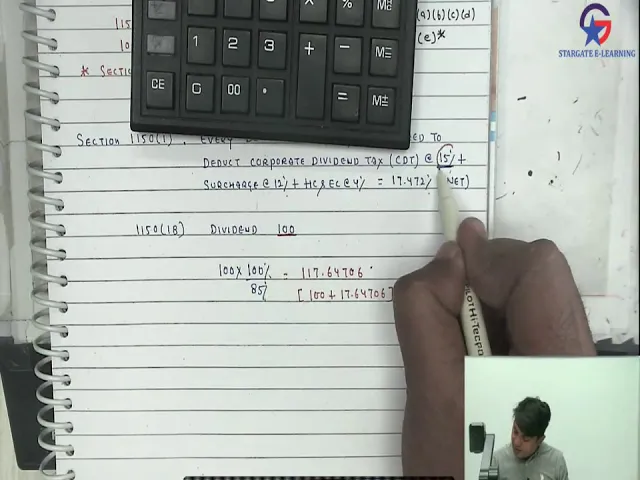 (a)(b)(c)(d)
115
(e)*
10
* SECTION
STARGATE E-LEARNING
% M
1 2 3 + - M=
CE 0 00 . = M±
SECTION 115O(1). EVERY TO
DEDUCT CORPORATE DIVIDEND TAX (CDT) @ 15% +
SURCHARGE @ 12% + HC & EC @ 4% = 17.472% NET)
115O(1B) DIVIDEND 100
100 X 100% = 117.64706
85% [ 100 + 17.64706 ]